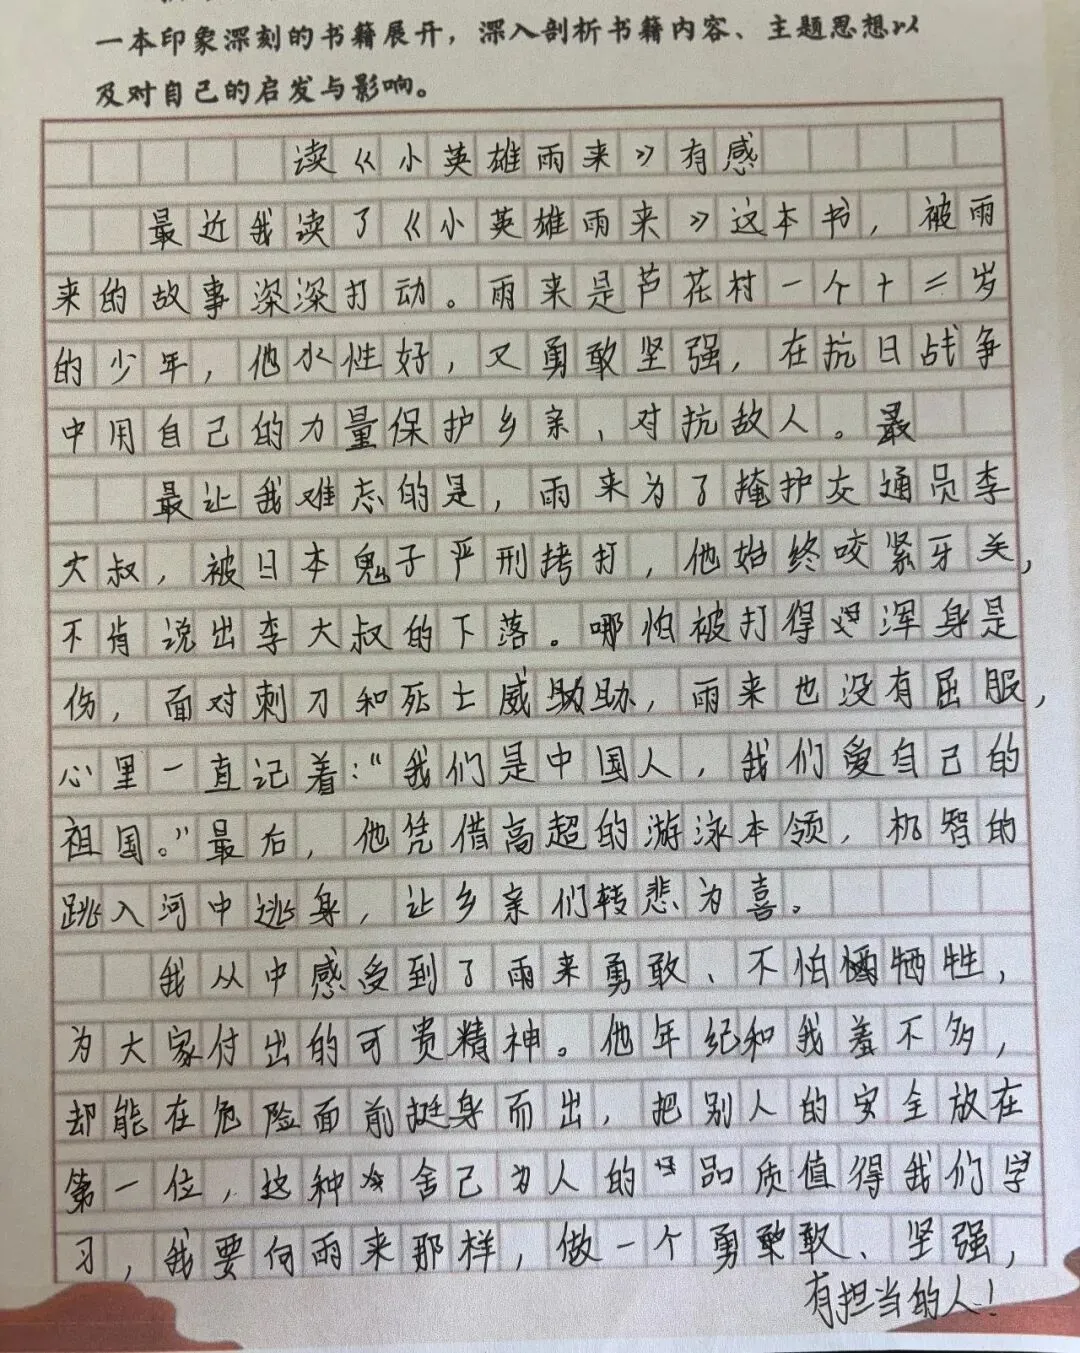 一本印象深刻的书籍展开，深入剖析书籍内容、主题思想以
及对自己的启发与影响。
读《小英雄雨来》有感
最近我读了《小英雄雨来》这本书，被雨
来的故事深深打动。雨来是芦花村一个十二岁
的少年，他水性好，又勇敢坚强，在抗日战争
中用自己的力量保护乡亲、对抗敌人。最
最让我难忘的是，雨来为了掩护交通员李
大叔，被日本鬼子严刑拷打，他始终咬紧牙关，
不肯说出李大叔的下落。哪怕被打得浑身是
伤，面对刺刀和死士威胁，雨来也没有屈服，
心里一直记着：“我们是中国人，我们爱自己的
祖国。”最后，他凭借高超的游泳本领，机智的
跳入河中逃身，让乡亲们转悲为喜。
我从中感受到了雨来勇敢、不怕牺牲，
为大家付出的可贵精神。他年纪和我差不多，
却能在危险面前挺身而出，把别人的安全放在
第一位，这种舍己为人的品质值得我们学
习，我要向雨来那样，做一个勇敢、坚强，
有担当的人！